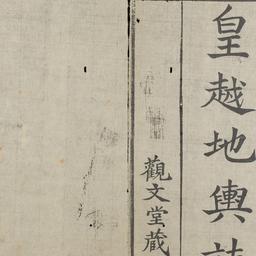 皇越地輿誌
觀文堂藏